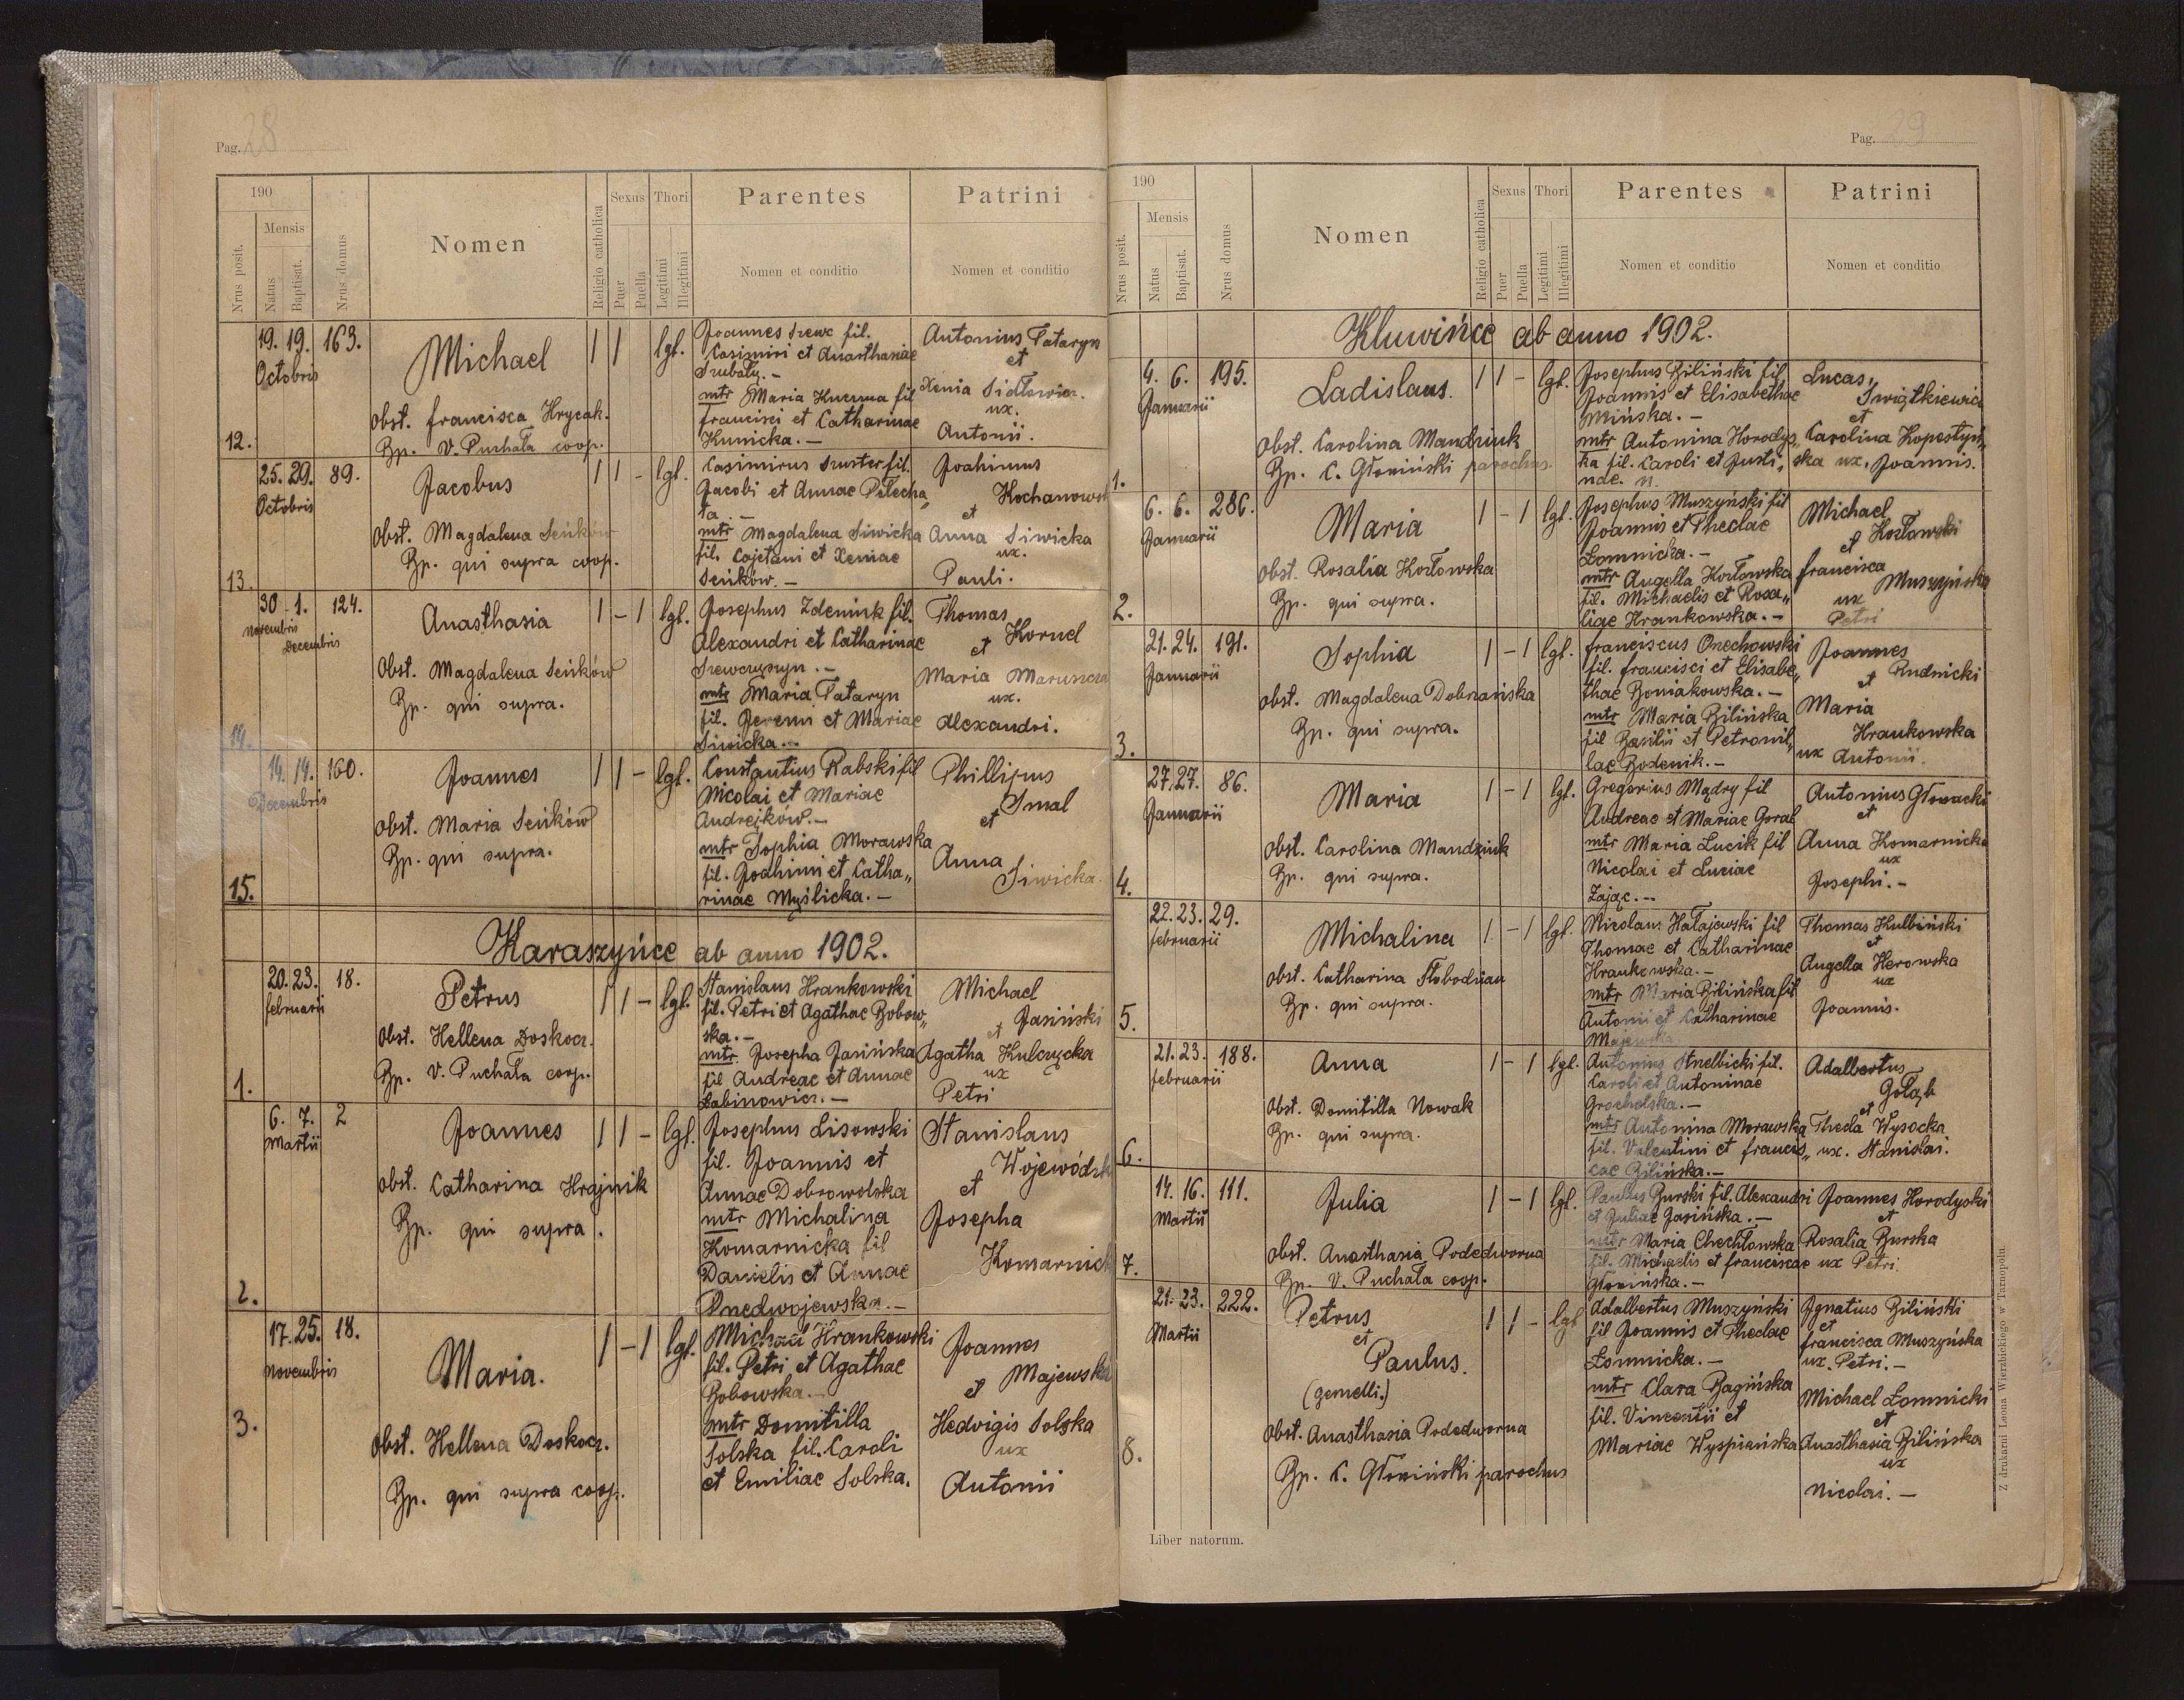 Pag. 28
190
Mensis
Nrus posit.
Natus
Baptisat.
Nrus domus
Nomen
Religio catholica
Sexus
Puer
Puella
Thori
Legitimi
Illegitimi
Parentes
Nomen et conditio
Patrini
Nomen et conditio
12.
19. 19. 163.
Octobris
Michael
obst. francisca Hrycak.
Bp. V. Puchała coop.
1 1 lgl.
Joannes fil.
Casimiri et Anasthasiae
mtr Maria fil
francisci et Catharinae
Kunicka. –
Antonius Tataryn
et
Xenia
ux.
Antonii.
13.
25. 29. 89.
Octobris
Jacobus
Obst. Magdalena Seńków
Bp. qui supra coop.
1 1 - lgl.
Casimirus Szuster fil.
Jacobi et Annae Pelecha„
ta. –
mtr Magdalena Siwicka
fil. Cajetani et Xeniae
Seńków. –
Joahimus
Kochanowski
et
Anna Siwicka
ux.
Pauli.
14.
30 - 1. 124.
novembris
Decembris
Anasthasia
Obst. Magdalena Seńków
Bp. qui supra.
1 - 1 lgl.
Josephus Zdeniuk fil.
Alexandri et Catharinae
Szewczyszyn. –
mtr Maria Tataryn
fil. et Mariae
Siwicka. –
Thomas
Kornel
et
Maria
ux.
Alexandri.
15.
14. 14. 160.
Decembris
Joannes
obst. Maria Seńków
Bp. qui supra.
1 1 - lgl.
Constantius Rabski fil
Nicolai et Mariae
Andrejków. –
mtr Sophia Morawska
fil. Joahimi et Catha„
rinae Myślicka. –
Phillipus
Smal
et
Anna
Siwicka.
Karaszyńce ab anno 1902.
1.
20. 23. 18.
februarii
Petrus
Obst. Hellena Doskocz.
Bp. V. Puchała coop.
1 1 - lgl.
Stanislaus Hrankowski
fil. Petri et Agathae Bobow„
ska. –
mtr. Josepha Jasińska
fil Andreae et Annae
Sabinowicz. –
Michael
Jasiński
et
Agatha Kulczycka
ux
Petri
2.
6. 7. 2
Martii
Joannes
obst. Catharina Hrajnik
Bp. qui supra.
1 1 - lgl.
Josephus Lisowski
fil. Joannis et
Annae Dobrowolska
mtr Michalina
Komarnicka fil
Danielis et Annae
Przedwojewska. –
Stanislaus
Wojewódzki
et
Josepha
Komarnicka
3.
17. 25. 18.
novembris
Maria.
obst. Hellena Doskocz.
Bp. qui supra coop.
1 - 1 lgl.
Michael Hrankowski
fil. Petri et Agathae
Bobowska. –
mtr Domitilla
Solska fil. Caroli
et Emiliae Solska.
Joannes
Majewska
et
Hedvigis Solska
ux
Antonii
Pag. 29
190
Mensis
Nrus posit.
Natus
Baptisat.
Nrus domus
Nomen
Religio catholica
Sexus
Puer
Puella
Thori
Legitimi
Illegitimi
Parentes
Nomen et conditio
Patrini
Nomen et conditio
Kluwińce ab anno 1902.
1.
4. 6. 195.
Januarii
Ladislaus.
obst. Carolina Mandziuk
Bp. C. Głowiński parochus.
1 1 - lgl.
Josephus Biliński fil
Joannis et Elisabethae
Mińska. –
mtr Antonina Horodys„
ka fil. Caroli et Justi„
nae. n.
Lucas,
Swiątkiewicz
et
Carolina Kopestyń„
ska ux. Joannis.
2.
6. 6. 286.
Januarii
Maria
obst. Rosalia Kozłowska
Bp. qui supra.
1 - 1 lgl.
Josephus Muszyński fil
Joannis et Theclae
Łomnicka. –
mtr Angella Kozłowska
fil. Michaelis et Rosa„
liae Hrankowska. –
Michael
Kozłowski
et
francisca
Muszyńska
ux
Petri
3.
21. 24. 191.
Januarii
Sophia
obst. Magdalena Dobrzańska
Bp. qui supra.
1 - 1 lgl.
franciscus Orzechowski
fil. francisci et Elisabe„
thae Boniakowska. –
mtr Maria Bilińska
fil Basilii et Petronil„
lae Bodenik. –
Joannes
Rudnicki
et
Maria
Hrankowska
ux Antonii.
4.
27. 27. 86.
Januarii
Maria
obst. Carolina Mandziuk
Bp. qui supra.
1 - 1 lgl.
Gregorius Mądry fil
Andreae et Mariae Goral
mtr Maria Lucik fil
Nicolai et Luciae
Zając. –
Antonius Głowacki
et
Anna Komarnicka
ux
Josephi. –
5.
22. 23. 29.
februarii
Michalina
obst. Catharina Słobodzian
Bp. qui supra.
1 - 1 lgl.
Nicolaus Hałajewski fil
Thomae et Catharinae
Hrankowska. –
mtr Maria Bilińska fil
Antonii et Catharinae
Majewska
Thomas Kulbiński
et
Angella Herowska
ux
Joannis.
6.
21. 23. 188.
februarii
Anna
Obst. Domitilla Nowak
Bp. qui supra.
1 - 1 lgl.
Antonius Strzelbicki fil.
Caroli et Antoninae
Grocholska. –
mtr Antonina Morawska
fil. Valentini et francis„
cae Bilińska. –
Adalbertus
Gołąb
et
Thecla Wysocka
ux. Stanislai.
7.
14. 16. 111.
Martii
Julia
obst. Anasthasia Podedworna
Bp. V. Puchała coop.
1 - 1 lgl.
Paulus Burski fil. Alexandri
et Juliae Jasińska. –
mtr Maria Chechłowska
fil. Michaelis et franciscae
Głowińska. –
Joannes Horodyski
et
Rosalia Burska
ux Petri.
8.
21. 23. 222.
Martii
Petrus
et
Paulus.
(gemelli.)
obst. Anasthasia Podedworna
Bp. C. Głowiński parochus
1 1 - lgl
Adalbertus Muszyński
fil Joannis et Theclae
Łomnicka. –
mtr Clara Bagińska
fil. Vincentii et
Mariae Wyspiańska
Ignatius Biliński
et
francisca Muszyńska
ux. Petri. –
Michael Łomnicki
et
Anasthasia Bilińska
ux
Nicolai. –
Liber natorum.
Z drukarni Leona Wierzbickiego w Tarnopolu.